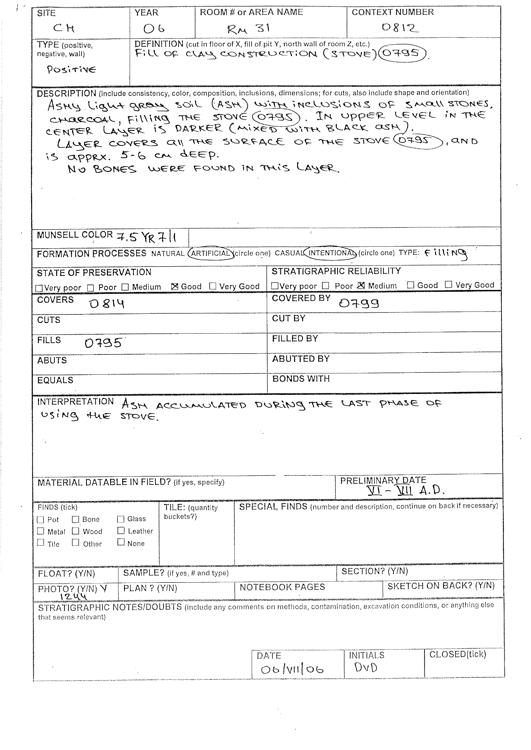 SITE YEAR ROOM # or AREA NAME CONTEXT NUMBER
CH 06 RM 31 0812
TYPE (positive, negative, wall) DEFINITION (cut in floor of X, fill of pit Y, north wall of room Z, etc.)
POSITIVE FILL OF CLAY CONSTRUCTION (STOVE) 0795.
DESCRIPTION (include consistency, color, composition, inclusions, dimensions; for cuts, also include shape and orientation)
ASHY LIGHT GRAY SOIL (ASH) WITH INCLUSIONS OF SMALL STONES,
CHARCOAL, FILLING THE STOVE 0795. IN UPPER LEVEL IN THE
CENTER LAYER IS DARKER (MIXED WITH BLACK ASH).
LAYER COVERS ALL THE SURFACE OF THE STOVE 0795, AND
IS APPRX. 5-6 CM DEEP.
NO BONES WERE FOUND IN THIS LAYER.
MUNSELL COLOR 7.5 YR 7/1
FORMATION PROCESSES NATURAL ARTIFICIAL (circle one) CASUAL INTENTIONAL (circle one) TYPE: FILLING
STATE OF PRESERVATION STRATIGRAPHIC RELIABILITY
☐ Very poor ☐ Poor ☐ Medium ☒ Good ☐ Very Good ☐ Very poor ☐ Poor ☒ Medium ☐ Good ☐ Very Good
COVERS 0814 COVERED BY 0799
CUTS CUT BY
FILLS 0795 FILLED BY
ABUTS ABUTTED BY
EQUALS BONDS WITH
INTERPRETATION ASH ACCUMULATED DURING THE LAST PHASE OF
USING THE STOVE.
MATERIAL DATABLE IN FIELD? (if yes, specify) PRELIMINARY DATE
VI - VII A.D.
FINDS (tick) TILE: (quantity buckets?) SPECIAL FINDS (number and description, continue on back if necessary)
☐ Pot ☐ Bone ☐ Glass
☐ Metal ☐ Wood ☐ Leather
☐ Tile ☐ Other ☐ None
FLOAT? (Y/N) SAMPLE? (if yes, # and type) SECTION? (Y/N)
PHOTO? (Y/N) Y PLAN ? (Y/N) NOTEBOOK PAGES SKETCH ON BACK? (Y/N)
1244
STRATIGRAPHIC NOTES/DOUBTS (include any comments on methods, contamination, excavation conditions, or anything else
that seems relevant)
DATE INITIALS CLOSED(tick)
06/VII/06 DVD